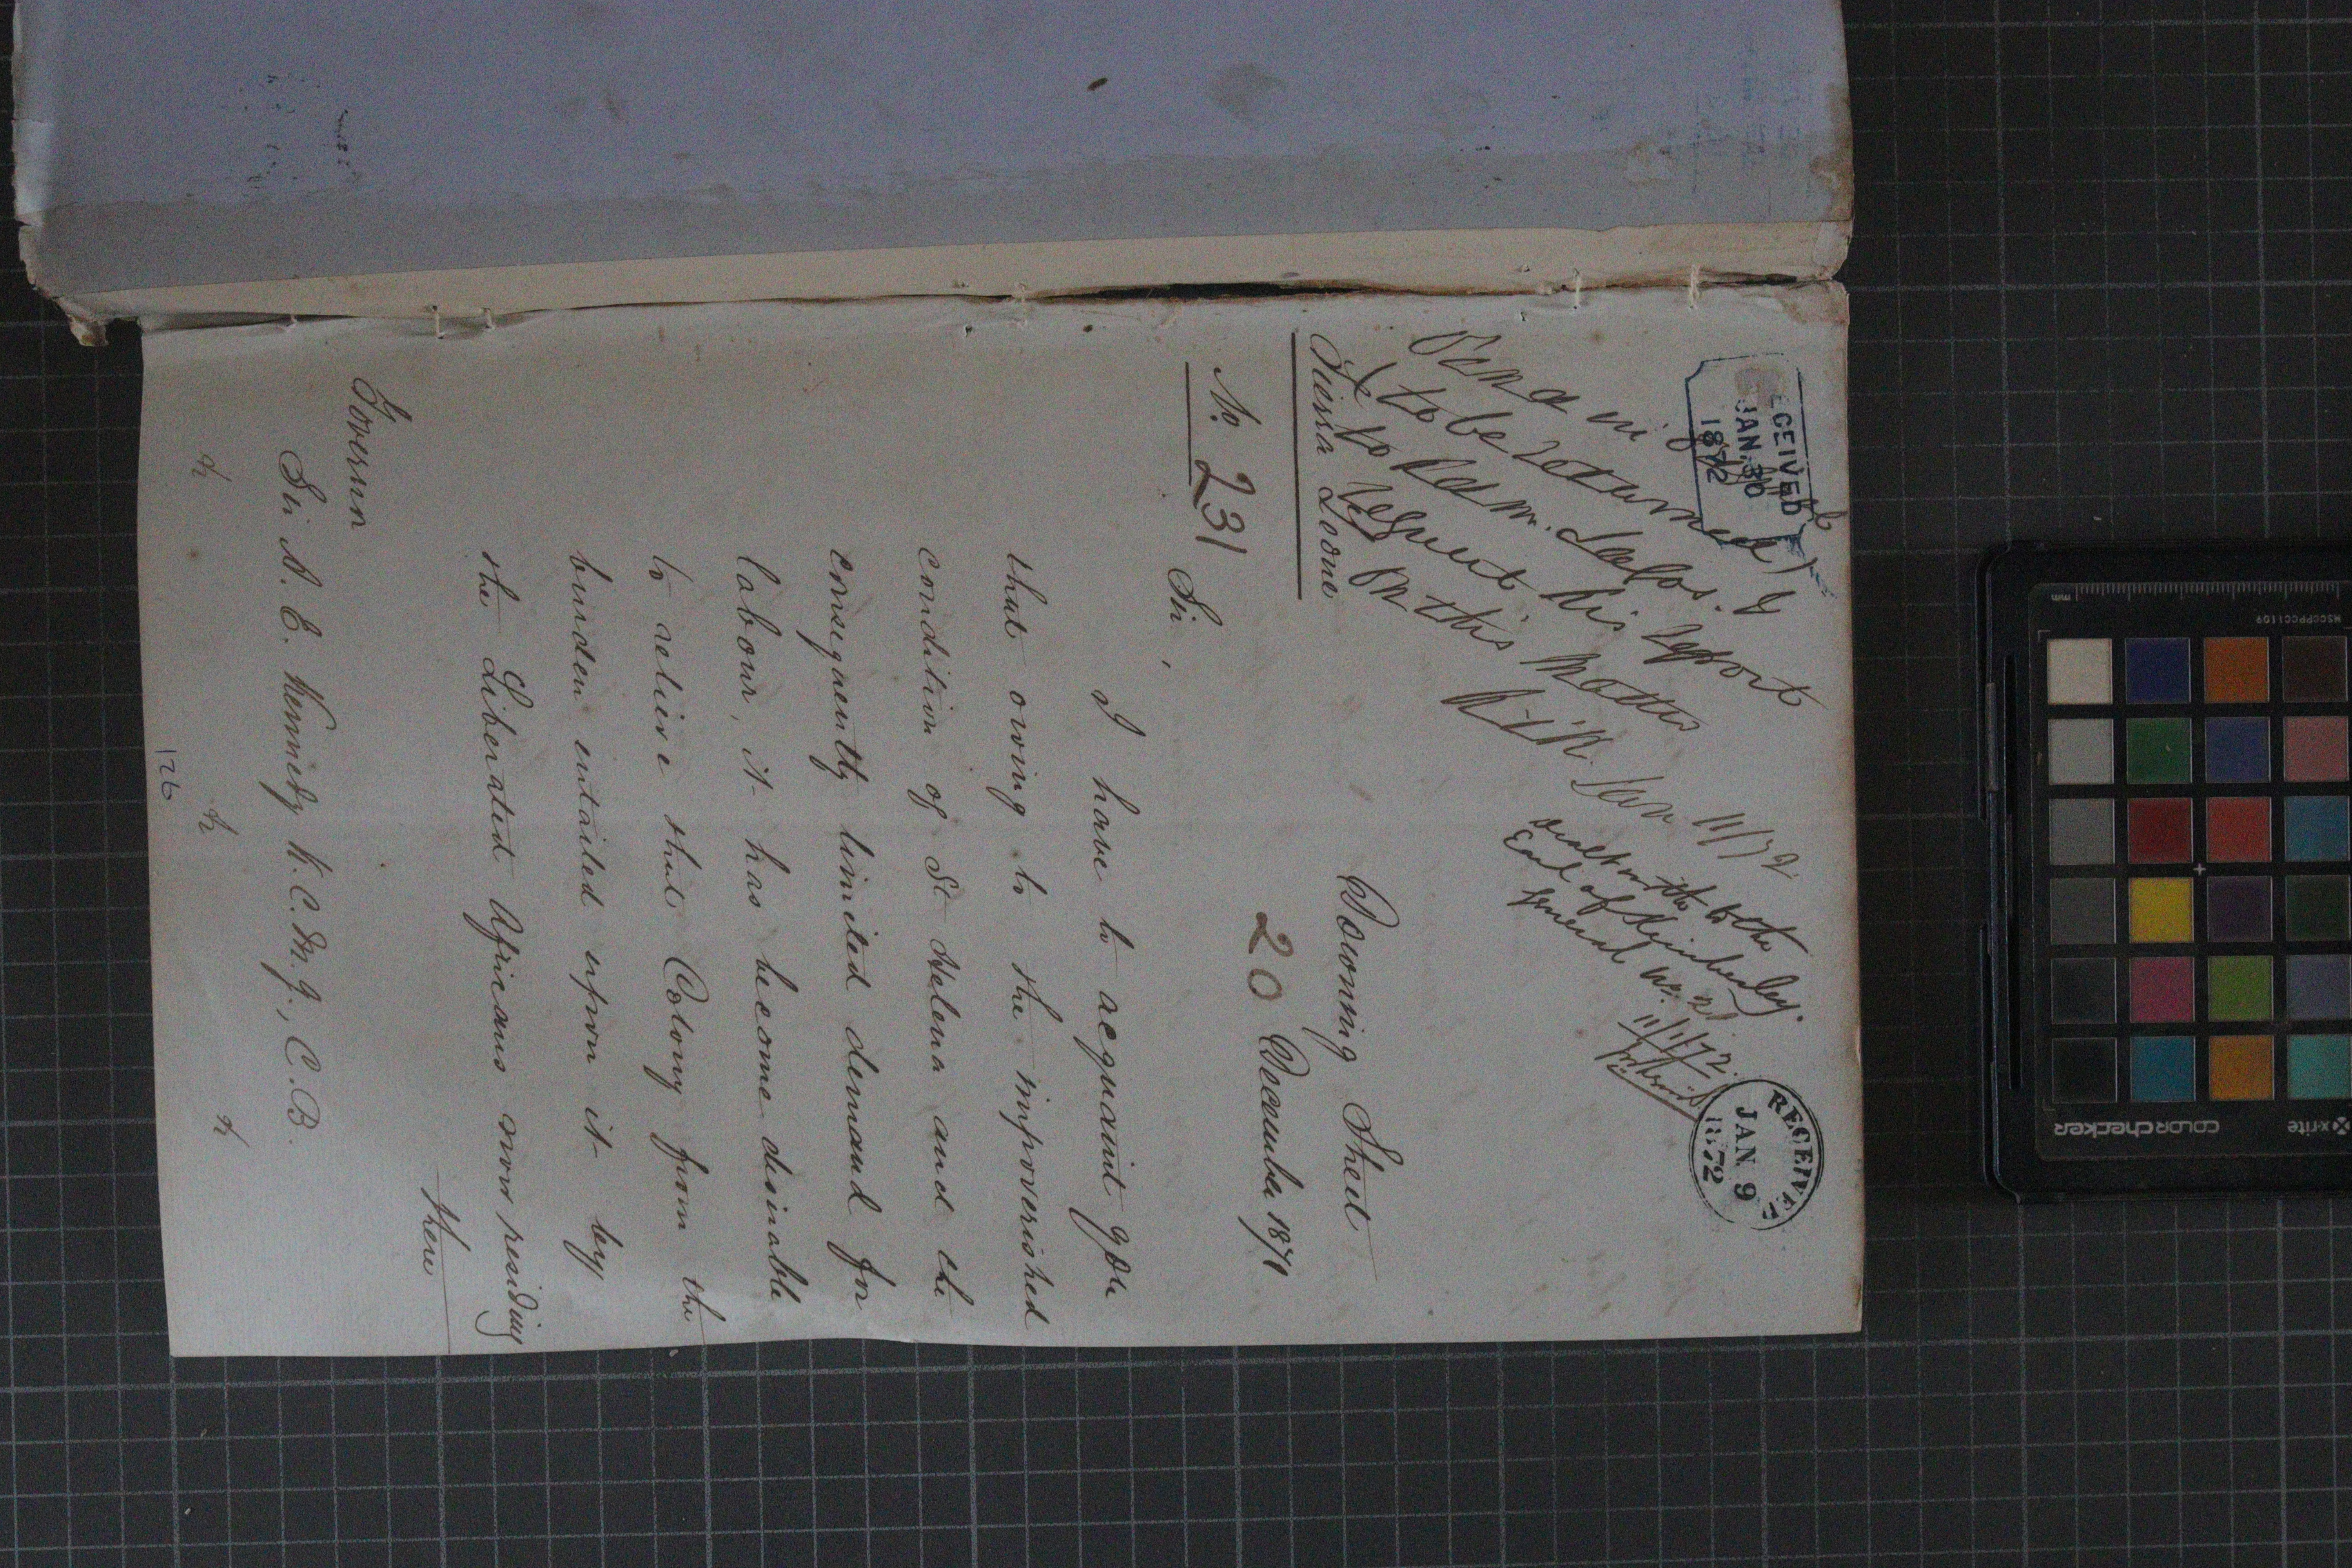 RECEIVED
JAN. 30
1872
Send in
(to be returned)
to Adm. Lagos. &
request his report
on this matter
AEK Jan 11/72
dealt with to the
Earl of Kimberley.
General No. 2
11/1/72
RECEIVED
JAN. 9
1872
Sierra Leone
No. 231
Downing Street
20 December 1871
Sir,
I have to acquaint you
that owing to the impoverished
condition of St Helena and the
consequently limited demand for
labour, it has become desirable
to relieve that Colony from the
burden entailed upon it by
the Liberated Africans now residing
there
Governor
Sir A. E. Kennedy K.C.M.G., C.B.
&c &c &c
126